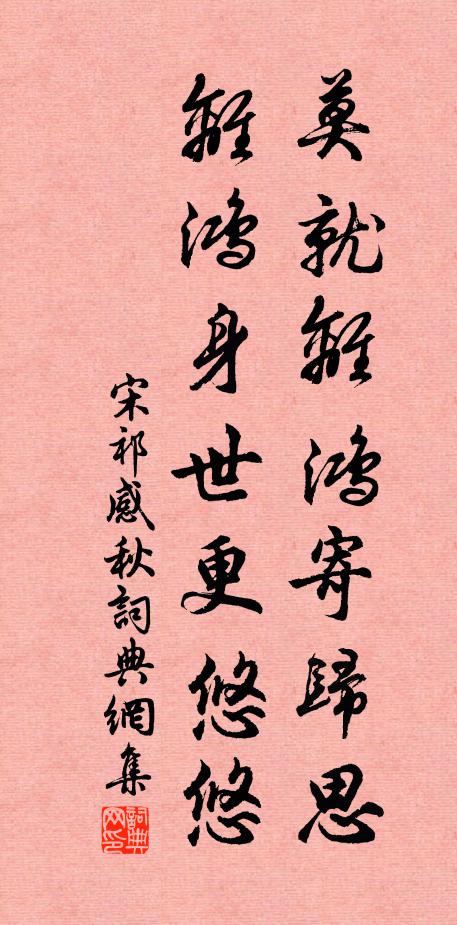 莫就離鴻寄歸思
離鴻身世更悠悠
宋祁感秋詞典網集
詞典网印